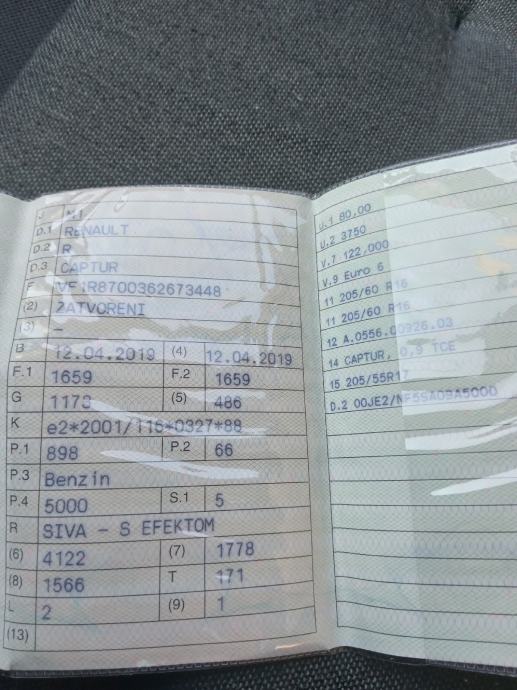 J M1
D.1 RENAULT
D.2 R
D.3 CAPTUR
E VF1R8700362673448
(2) ZATVORENI
(3) -
B 12.04.2019 (4) 12.04.2019
F.1 1659 F.2 1659
G 1173 (5) 486
K e2*2001/116*0327*88
P.1 898 P.2 66
P.3 Benzin
P.4 5000 S.1 5
R SIVA - S EFEKTOM
(6) 4122 (7) 1778
(8) 1566 T 171
L 2 (9) 1
(13)
U.1 80,00
U.2 3750
V.7 122,000
V.9 Euro 6
11 205/60 R16
11 205/60 R16
12 A.0556.00926.03
14 CAPTUR, 0,9 TCE
15 205/55R17
D.2 00JE2/